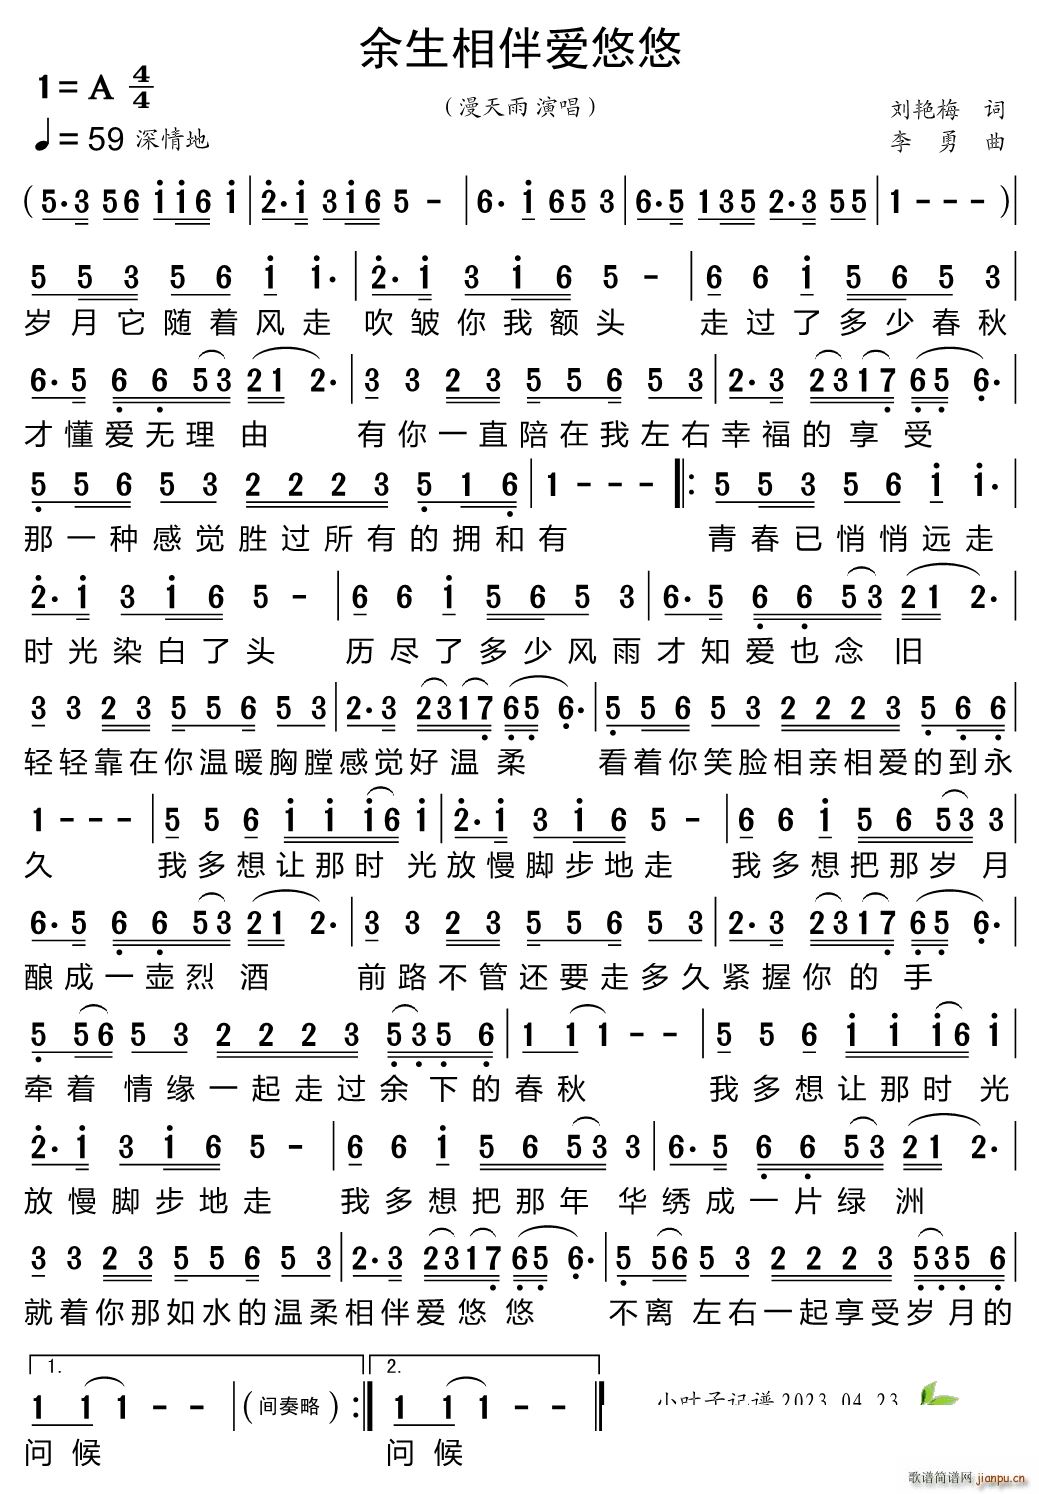 余生相伴爱悠悠
1=A 4/4
（漫天雨 演唱）
刘艳梅 词
♩=59 深情地
李勇 曲
(5·3 56 i i6 i | 2·i 3i6 5 - | 6· i 65 3 | 6·5 135 2·3 55 | 1 - - - )|
5 5 3 5 6 i i· | 2·i 3 i 6 5 - | 6 6 i 5 6 5 3 |
岁月它随着风走 吹皱你我额头 走过了多少春秋
6·5 6 6 53 21 2· | 3 3 2 3 5 5 6 5 3 | 2·3 2317 65 6· |
才懂爱无理由 有你一直陪在我左右幸福的享受
5 5 6 5 3 2 2 2 3 5 1 6 | 1 - - - |: 5 5 3 5 6 i i· |
那一种感觉胜过所有的拥和有 青春已悄悄远走
2·i 3 i 6 5 - | 6 6 i 5 6 5 3 | 6·5 6 6 53 21 2· |
时光染白了头 历尽了多少风雨才知爱也念旧
3 3 2 3 5 5 6 5 3 | 2·3 2317 65 6· | 5 5 6 5 3 2 2 2 3 5 6 6 |
轻轻靠在你温暖胸膛感觉好温柔 看着你笑脸相亲相爱的到永
1 - - - | 5 5 6 i i i6 i | 2·i 3 i 6 5 - | 6 6 i 5 6 53 3 |
久 我多想让那时光放慢脚步地走 我多想把那岁月
6·5 6 6 53 21 2· | 3 3 2 3 5 5 6 5 3 | 2·3 2317 65 6· |
酿成一壶烈酒 前路不管还要走多久紧握你的手
5 56 5 3 2 2 2 3 535 6 | 1 1 1 - - | 5 5 6 i i i6 i |
牵着情缘一起走过余下的春秋 我多想让那时光
2·i 3 i 6 5 - | 6 6 i 5 6 53 3 | 6·5 6 6 53 21 2· |
放慢脚步地走 我多想把那年华绣成一片绿洲
3 3 2 3 5 5 6 5 3 | 2·3 2317 65 6· | 5 56 5 3 2 2 2 3 535 6 |
就着你那如水的温柔相伴爱悠悠 不离左右一起享受岁月的
1. 2.
1 1 1 - - | (间奏略) :| 1 1 1 - - |
小叶子记谱 2023.04.23
问候 问候
歌谱简谱网 jianpu.cn